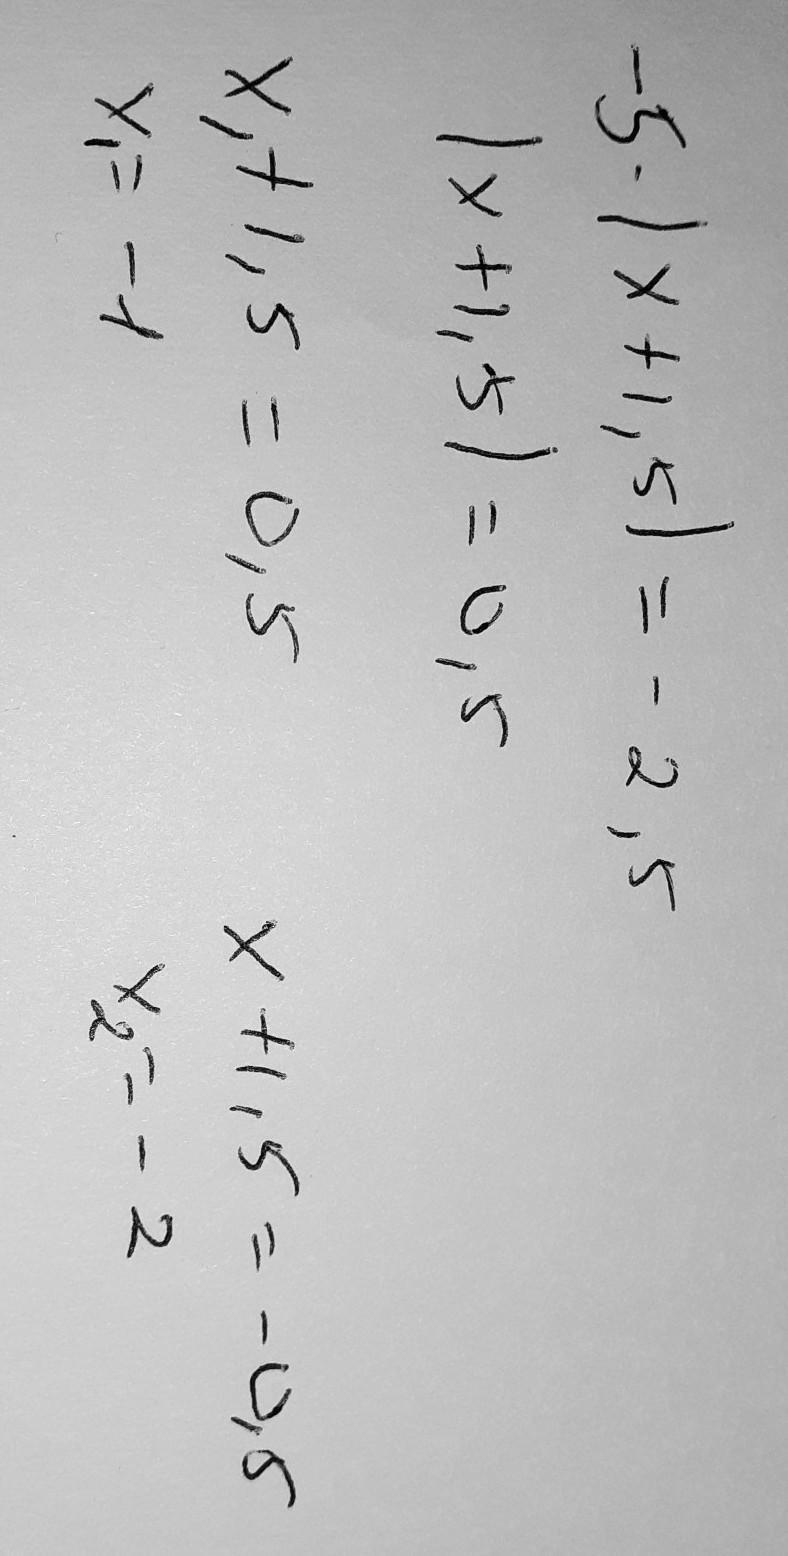 -5·|x+1,5|=-2,5
|x+1,5|=0,5
x₁+1,5=0,5 x+1,5=-0,5
x₁=-1 x₂=-2